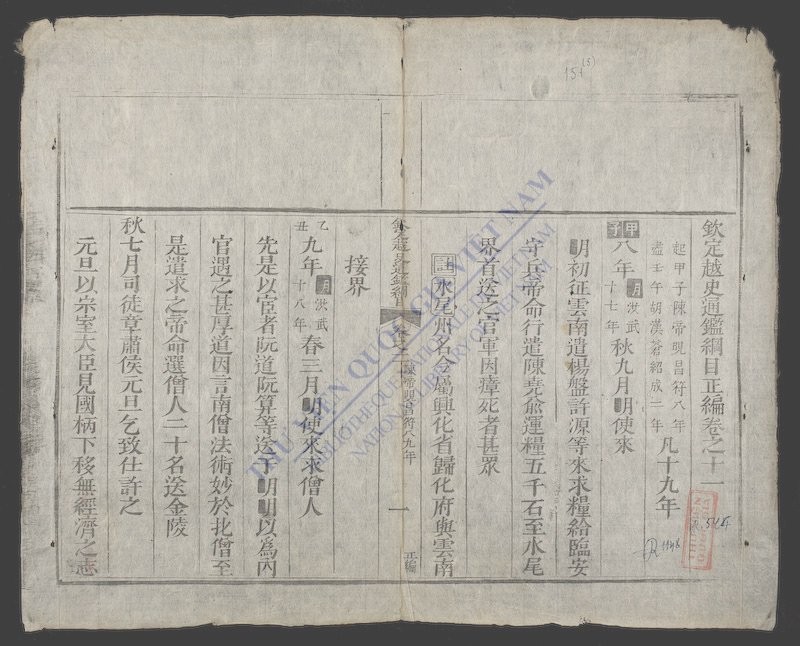 欽定越史通鑑綱目正編卷之十一
起甲子陳帝晛昌符八年
盡壬午胡漢蒼紹成二年
凡十九年
甲子
八年
明洪武
十七年
秋九月明使來
明初征雲南遣楊盤許源等來求糧給臨安
守兵帝命行遣陳堯俞運糧五千石至水尾
界首送之官軍因瘴死者甚眾
註水尾州名今屬興化省歸化府與雲南
陳帝晛昌符八九年
一
正編
接界
乙丑
九年
明洪武
十八年
春三月明使來求僧人
先是以宦者阮道阮算等送明明以為內
官遇之甚厚道因言南僧法術妙於北僧至
是遣求之帝命選僧人二十名送金陵
秋七月司徒章肅侯元旦乞致仕許之
元旦以宗室大臣見國柄下移無經濟之志
THƯ VIỆN QUỐC GIA VIỆT NAM
BIBLIOTHÈQUE NATIONALE DU VIETNAM
NATIONAL LIBRARY OF VIETNAM